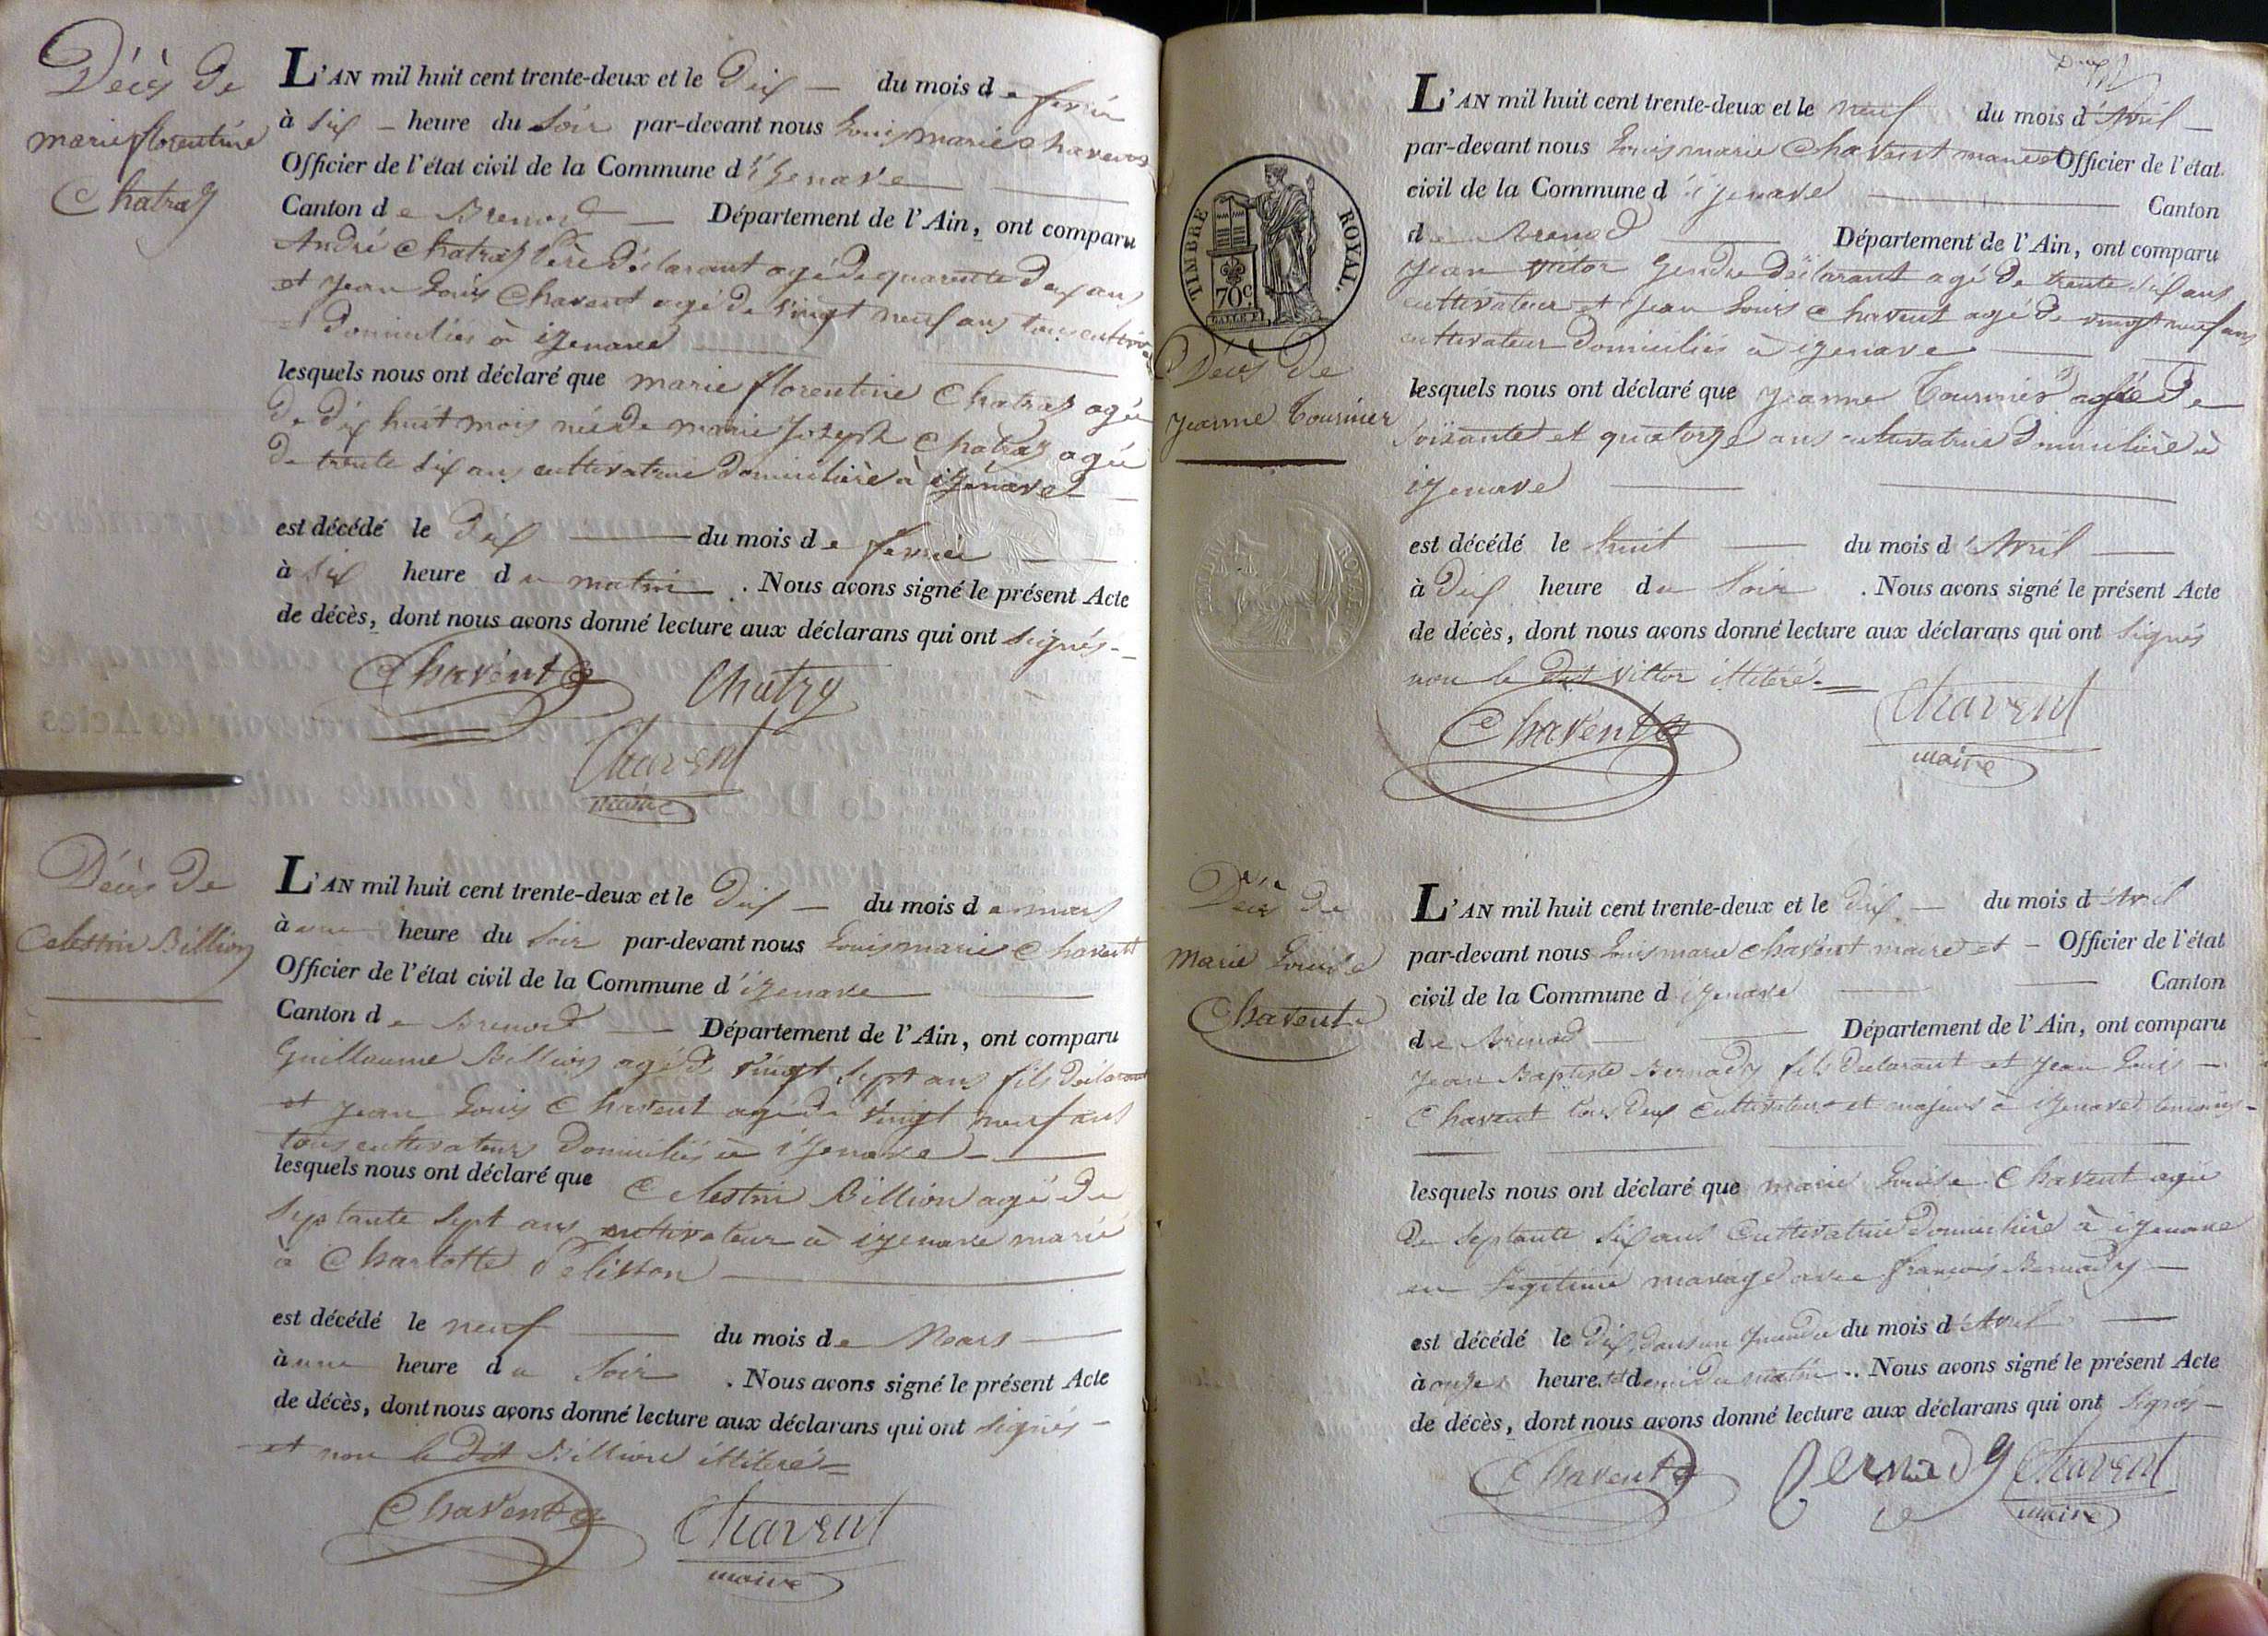 Décès De
marie florentine
Chatraz
L'AN mil huit cent trente-deux et le Dix — du mois de fevrier
à Six — heure du Soir par-devant nous Louis marie Chavent
Officier de l'état civil de la Commune d'izenave
Canton de Brenod — Département de l'Ain, ont comparu
André Chatraz Père Déclarant agé de quarente deux ans
et jean Louis Chavent agé de vingt neuf ans tous
Domiciliés à izenave
lesquels nous ont déclaré que marie florentine Chatraz agée
De Dix huit mois née De marie Joseph Chatraz agée
De trente Six ans cultivatrice Domicilière à izenave
est décédé le Dix — du mois de fevrier
à Six heure du matin . Nous avons signé le présent Acte
de décès, dont nous avons donné lecture aux déclarans qui ont Signés
Chavent Chatry
Chavent
maire
Décès De
Celestin Billion
L'AN mil huit cent trente-deux et le Dix — du mois de mars
à une heure du Soir par-devant nous Louis marie Chavent
Officier de l'état civil de la Commune d'izenave
Canton de Brenod — Département de l'Ain, ont comparu
Guillaume Billion agé de vingt Sept ans fils Déclarant
et jean Louis Chavent agé de vingt neuf ans
tous cultivateurs Domiciliés à izenave
lesquels nous ont déclaré que Celestin Billion agé De
Septante Sept ans cultivateur à izenave marié
à Charlotte Pelisson
est décédé le neuf — du mois de Mars
à une heure du Soir . Nous avons signé le présent Acte
de décès, dont nous avons donné lecture aux déclarans qui ont Signés
et non le Dit Billion illiteré
Chavent Chavent
maire
L'AN mil huit cent trente-deux et le neuf du mois d'Avril
par-devant nous Louis marie Chavent maire et Officier de l'état
civil de la Commune d'izenave Canton
de Brenod Département de l'Ain, ont comparu
jean victor Gendre Déclarant agé De trente Six ans
cultivateur et jean Louis Chavent agé De vingt neuf ans
cultivateur Domiciliés à izenave
TIMBRE ROYAL.
70c
Décès De
jeanne Tournier
lesquels nous ont déclaré que jeanne Tournier agée De
Soixante et quatorze ans cultivatrice Domicilière à
izenave
est décédé le huit — du mois d'Avril
à Dix heure du Soir . Nous avons signé le présent Acte
de décès, dont nous avons donné lecture aux déclarans qui ont Signés
non le Dit Victor illiteré
Chavent Chavent
maire
Décès De
Marie Louise
Chavent
L'AN mil huit cent trente-deux et le Dix — du mois d'Avril
par-devant nous Louis marie Chavent maire et — Officier de l'état
civil de la Commune d'izenave Canton
de Brenod Département de l'Ain, ont comparu
jean Baptiste Bernady fils Déclarant et jean Louis
Chavent tous Deux Cultivateurs et majeurs à izenave temoins
lesquels nous ont déclaré que marie Louise Chavent agée
De Septante Six ans Cultivatrice Domicilière à izenave
en Légitime mariage avec françois Bernady
est décédé le Dix, du mois d'Avril
à onzes heure et demi du matin . Nous avons signé le présent Acte
de décès, dont nous avons donné lecture aux déclarans qui ont Signés
Chavent Bernady Chavent
maire